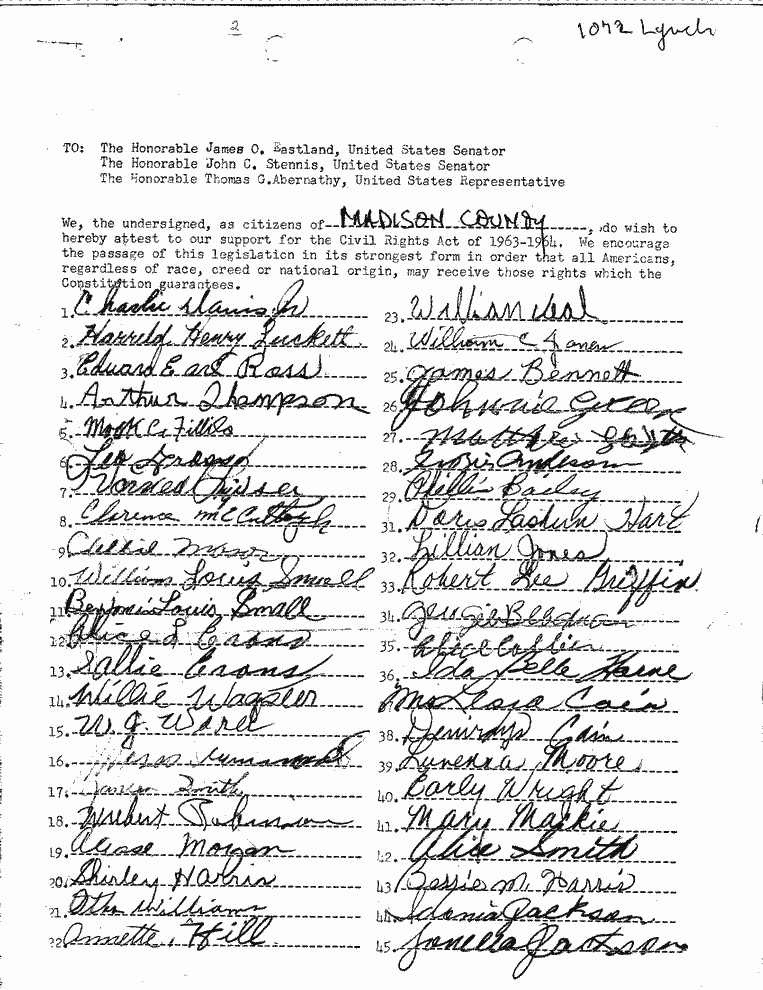 2
1072 Lynch
TO: The Honorable James O. Eastland, United States Senator
The Honorable John C. Stennis, United States Senator
The Honorable Thomas G.Abernathy, United States Representative
We, the undersigned, as citizens of MADISON COUNTY, do wish to
hereby attest to our support for the Civil Rights Act of 1963-1964. We encourage
the passage of this legislation in its strongest form in order that all Americans,
regardless of race, creed or national origin, may receive those rights which the
Constitution guarantees.
1. Charlie Davis Jr
2. Harreld Henry Luckett
3. Edward Earl Ross
4. Arthur Thompson
5. Mook C. Fillilo
6. Leo
7.
8. Clarence McCullough
9. Mason
10. William Louis Smell
11. Louis Small
12. Alice L Evans
13. Sallie Evans
14. Willie Wagster
15. W. J. Ward
16.
17. James Smith
18. Robinson
19. Morgan
20. Shirley Harris
21. Otha Williams
22. Annette Hill
23. William
24. William C Jones
25. James Bennett
26. Johnnie
27.
28. Anderson
29. Phillis Bailey
31. Doris Hart
32. Lillian Jones
33. Robert Lee Griffin
34.
35. Alice Collier
36. Ida Belle Horne
Mrs Cain
38. Cain
39. Luvenia Moore
40. Early Wright
41. Mary Mackie
42. Alice Smith
43 Bessie M. Harris
44. Jackson
45. Jackson